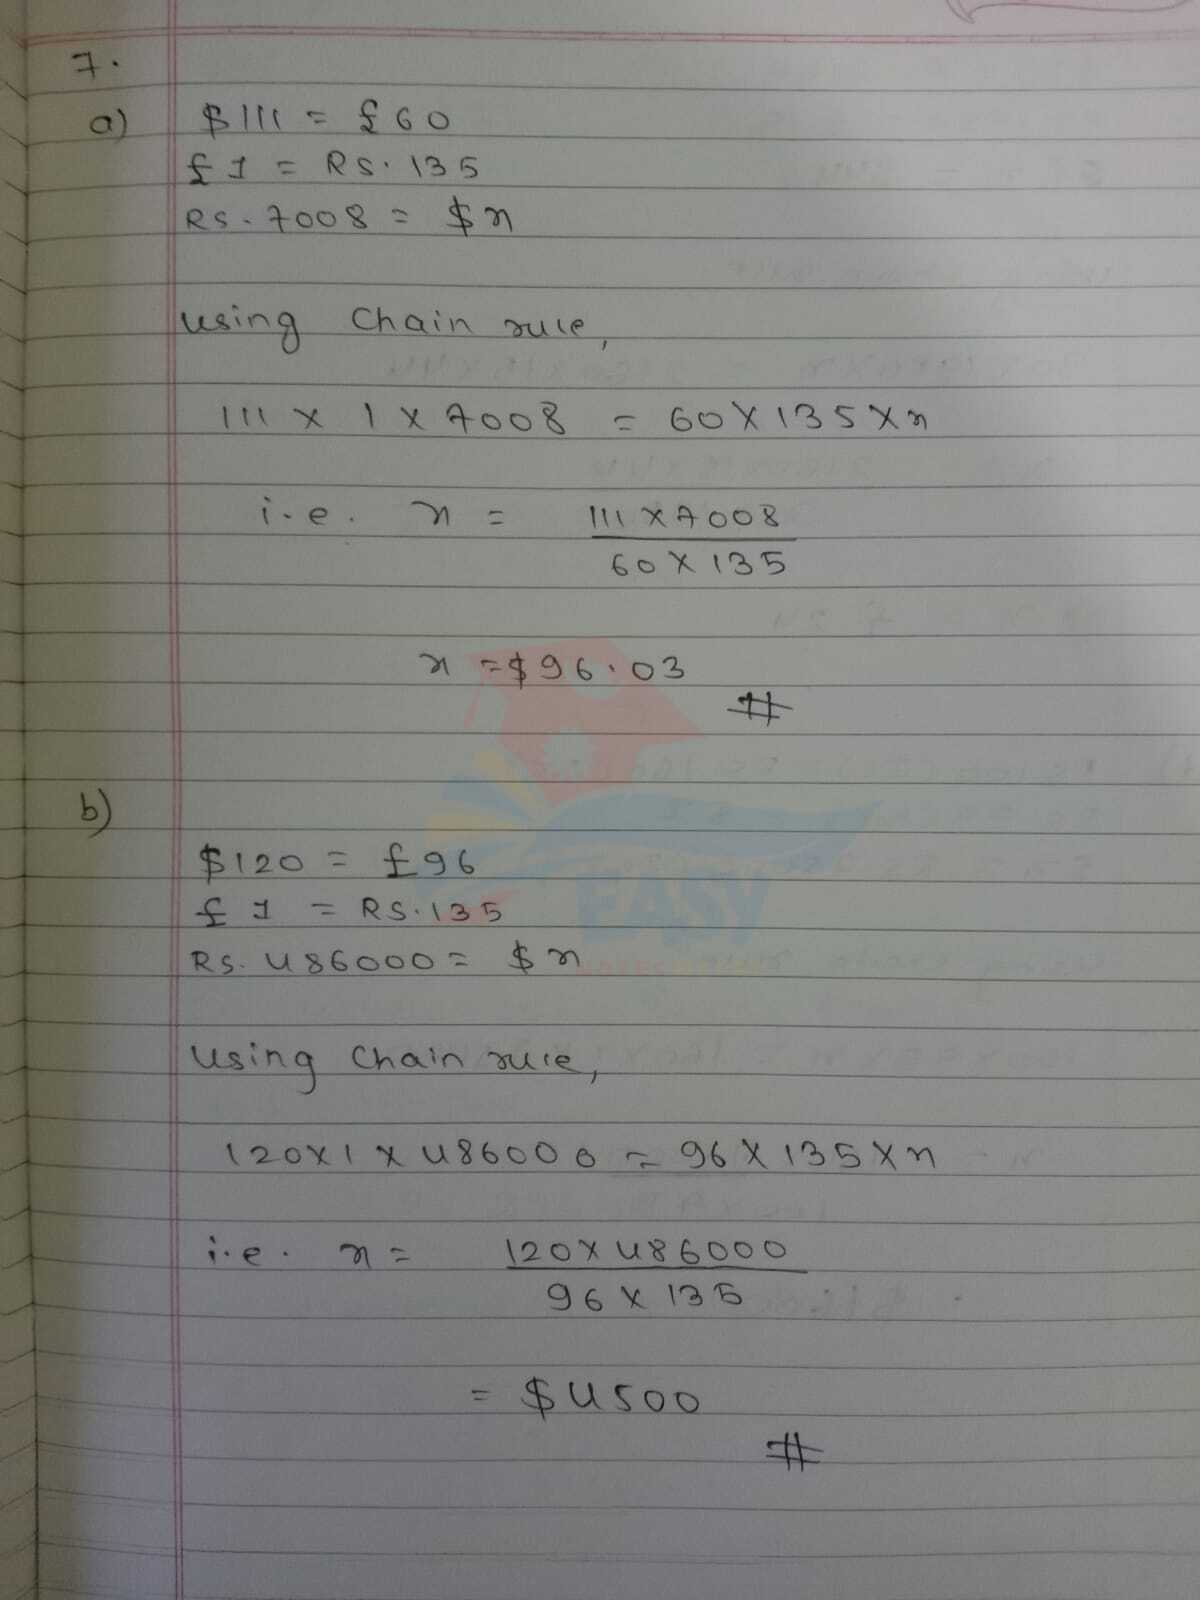 7.
a) $111 = £60
£1 = RS. 135
RS. 7008 = $x
using chain rule,
111 × 1 × 7008 = 60 × 135 × x
i.e. x = 111 × 7008
60 × 135
x = $96.03
#
b)
$120 = £96
£1 = RS. 135
RS. 486000 = $x
using chain rule,
120 × 1 × 486000 = 96 × 135 × x
i.e. x = 120 × 486000
96 × 135
= $4500
#
EASY